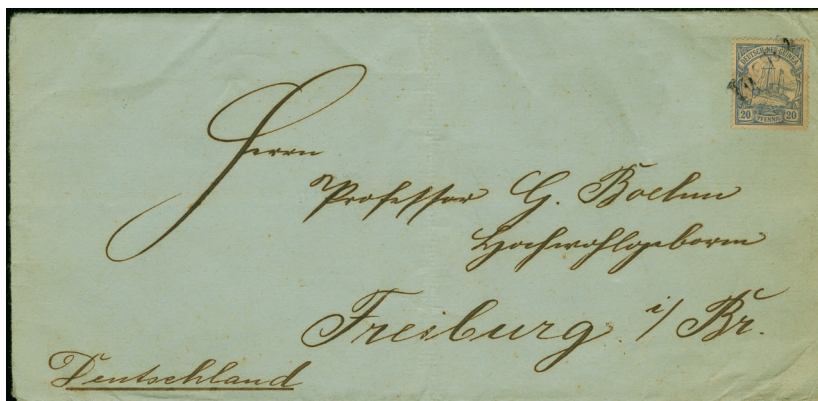 DEUTSCH-NEU-GUINEA
20 PFENNIG 20
Herrn
Professor G. Boehm
Hochwohlgeboren
Freiburg i/Br.
Deutschland